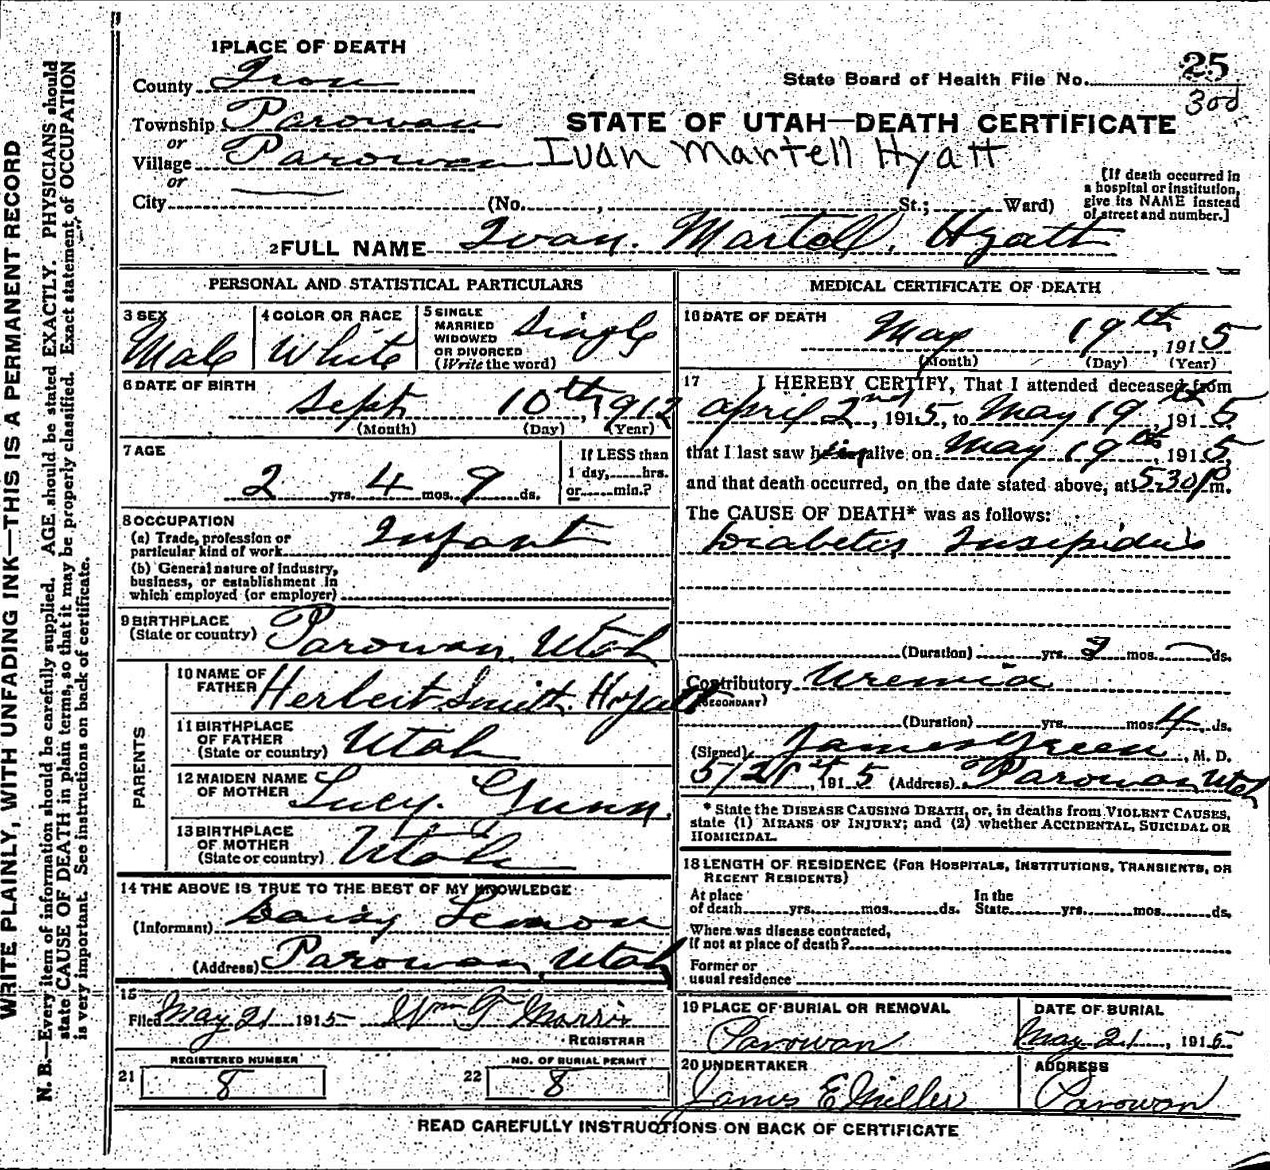 WRITE PLAINLY, WITH UNFADING INK—THIS IS A PERMANENT RECORD
N. B.—Every item of information should be carefully supplied. AGE should be stated EXACTLY. PHYSICIANS should
state CAUSE OF DEATH in plain terms, so that it may be properly classified. Exact statement of OCCUPATION
is very important. See instructions on back of certificate.
1 PLACE OF DEATH
County Iron
Township Parowan
or
Village Parowan
or
City (No. , St.; Ward)
State Board of Health File No. 25
300
STATE OF UTAH—DEATH CERTIFICATE
Ivan Martell Hyatt
[If death occurred in
a hospital or institution,
give its NAME instead
of street and number.]
2 FULL NAME Ivan. Martell. Hyatt
PERSONAL AND STATISTICAL PARTICULARS
3 SEX Male
4 COLOR OR RACE White
5 SINGLE MARRIED WIDOWED OR DIVORCED (Write the word) Single
6 DATE OF BIRTH
Sept 10th, 1912
(Month) (Day) (Year)
7 AGE
2 yrs. 4 mos. 9 ds.
If LESS than
1 day, hrs.
or min.?
8 OCCUPATION
(a) Trade, profession or
particular kind of work Infant
(b) General nature of industry,
business, or establishment in
which employed (or employer)
9 BIRTHPLACE
(State or country) Parowan, Utah
PARENTS
10 NAME OF FATHER Herbert Smith Hyatt
11 BIRTHPLACE OF FATHER (State or country) Utah
12 MAIDEN NAME OF MOTHER Lucy. Gunn.
13 BIRTHPLACE OF MOTHER (State or country) Utah
14 THE ABOVE IS TRUE TO THE BEST OF MY KNOWLEDGE
(Informant) Daisy Lemon
(Address) Parowan, Utah
15
Filed May 21 1915 Wm F Morris
REGISTRAR
REGISTERED NUMBER
21 8
NO. OF BURIAL PERMIT
22 8
MEDICAL CERTIFICATE OF DEATH
16 DATE OF DEATH
May 19th, 1915
(Month) (Day) (Year)
17 I HEREBY CERTIFY, That I attended deceased from
april 2nd, 1915, to May 19th 1915
that I last saw him alive on May 19th, 1915
and that death occurred, on the date stated above, at 5:30 P m.
The CAUSE OF DEATH* was as follows:
Diabetes Insipidus
(Duration) yrs. 2 mos. ds.
Contributory Uremia
(SECONDARY)
(Duration) yrs. mos. 4 ds.
(Signed) James Green, M. D.
5/21st, 1915 (Address) Parowan Utah
* State the DISEASE CAUSING DEATH, or, in deaths from VIOLENT CAUSES,
state (1) MEANS OF INJURY; and (2) whether ACCIDENTAL, SUICIDAL OR
HOMICIDAL.
18 LENGTH OF RESIDENCE (FOR HOSPITALS, INSTITUTIONS, TRANSIENTS, OR
RECENT RESIDENTS)
At place of death yrs. mos. ds. In the State yrs. mos. ds.
Where was disease contracted,
if not at place of death?
Former or
usual residence
19 PLACE OF BURIAL OR REMOVAL
Parowan
DATE OF BURIAL
May 21, 1915
20 UNDERTAKER
James E Miller
ADDRESS
Parowan
READ CAREFULLY INSTRUCTIONS ON BACK OF CERTIFICATE